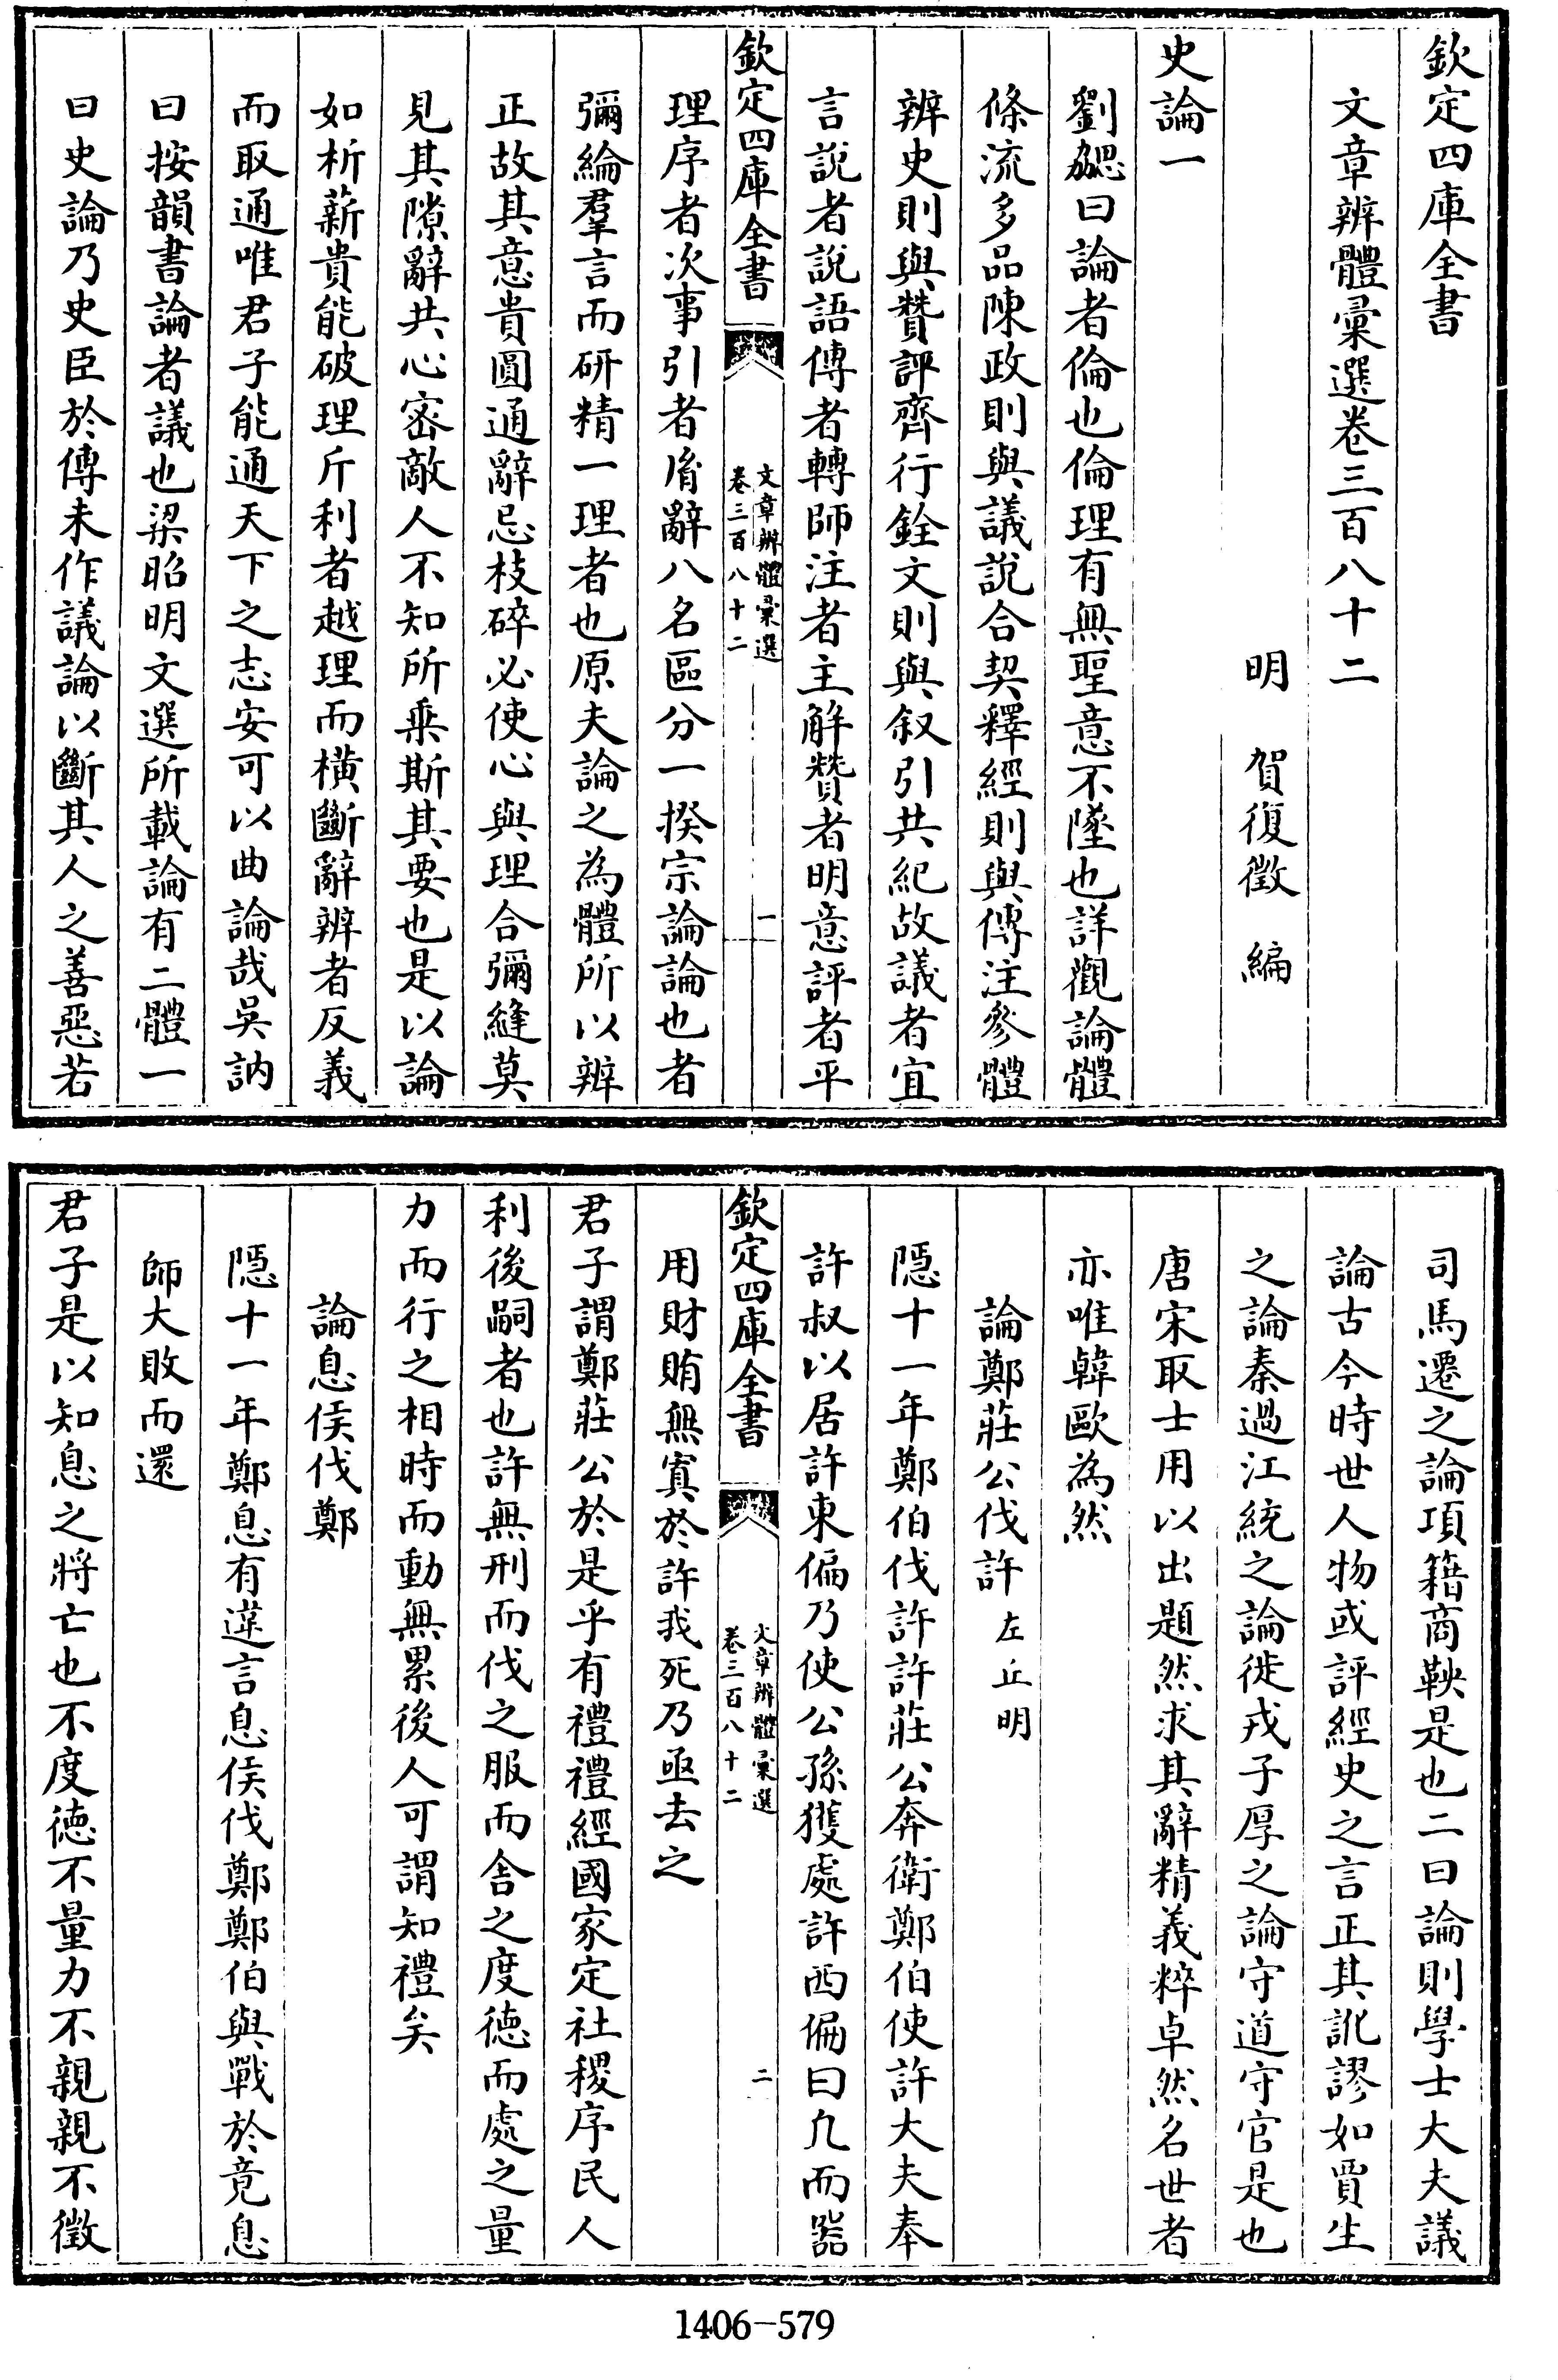 欽定四庫全書
文章辨體彚選卷三百八十二
明 賀復徵 編
史論一
劉勰曰論者倫也倫理有無聖意不墜也詳觀論體
條流多品陳政則與議說合契釋經則與傳注參體
辨史則與贊評齊行銓文則與叙引共紀故議者宜
言說者說語傳者轉師注者主解贊者明意評者平
欽定四庫全書
文章辨體彚選
卷三百八十二
一
理序者次事引者胤辭八名區分一揆宗論論也者
彌綸羣言而研精一理者也原夫論之為體所以辨
正故其意貴圓通辭忌枝碎必使心與理合彌縫莫
見其隙辭共心密敵人不知所乗斯其要也是以論
如析薪貴能破理斤利者越理而橫斷辭辨者反義
而取通唯君子能通天下之志安可以曲論哉吳訥
曰按韻書論者議也梁昭明文選所載論有二體一
曰史論乃史臣於傳末作議論以斷其人之善惡若
司馬遷之論項籍商鞅是也二曰論則學士大夫議
論古今時世人物或評經史之言正其訛謬如賈生
之論秦過江統之論徙戎子厚之論守道守官是也
唐宋取士用以出題然求其辭精義粹卓然名世者
亦唯韓歐為然
論鄭莊公伐許 左丘明
隱十一年鄭伯伐許許莊公奔衛鄭伯使許大夫奉
許叔以居許東偏乃使公孫獲處許西偏曰凡而器
欽定四庫全書
文章辨體彚選
卷三百八十二
二
用財賄無寘於許我死乃亟去之
君子謂鄭莊公於是乎有禮禮經國家定社稷序民人
利後嗣者也許無刑而伐之服而舍之度德而處之量
力而行之相時而動無累後人可謂知禮矣
論息侯伐鄭
隱十一年鄭息有違言息侯伐鄭鄭伯與戰於竟息
師大敗而還
君子是以知息之將亡也不度德不量力不親親不徵
1406-579